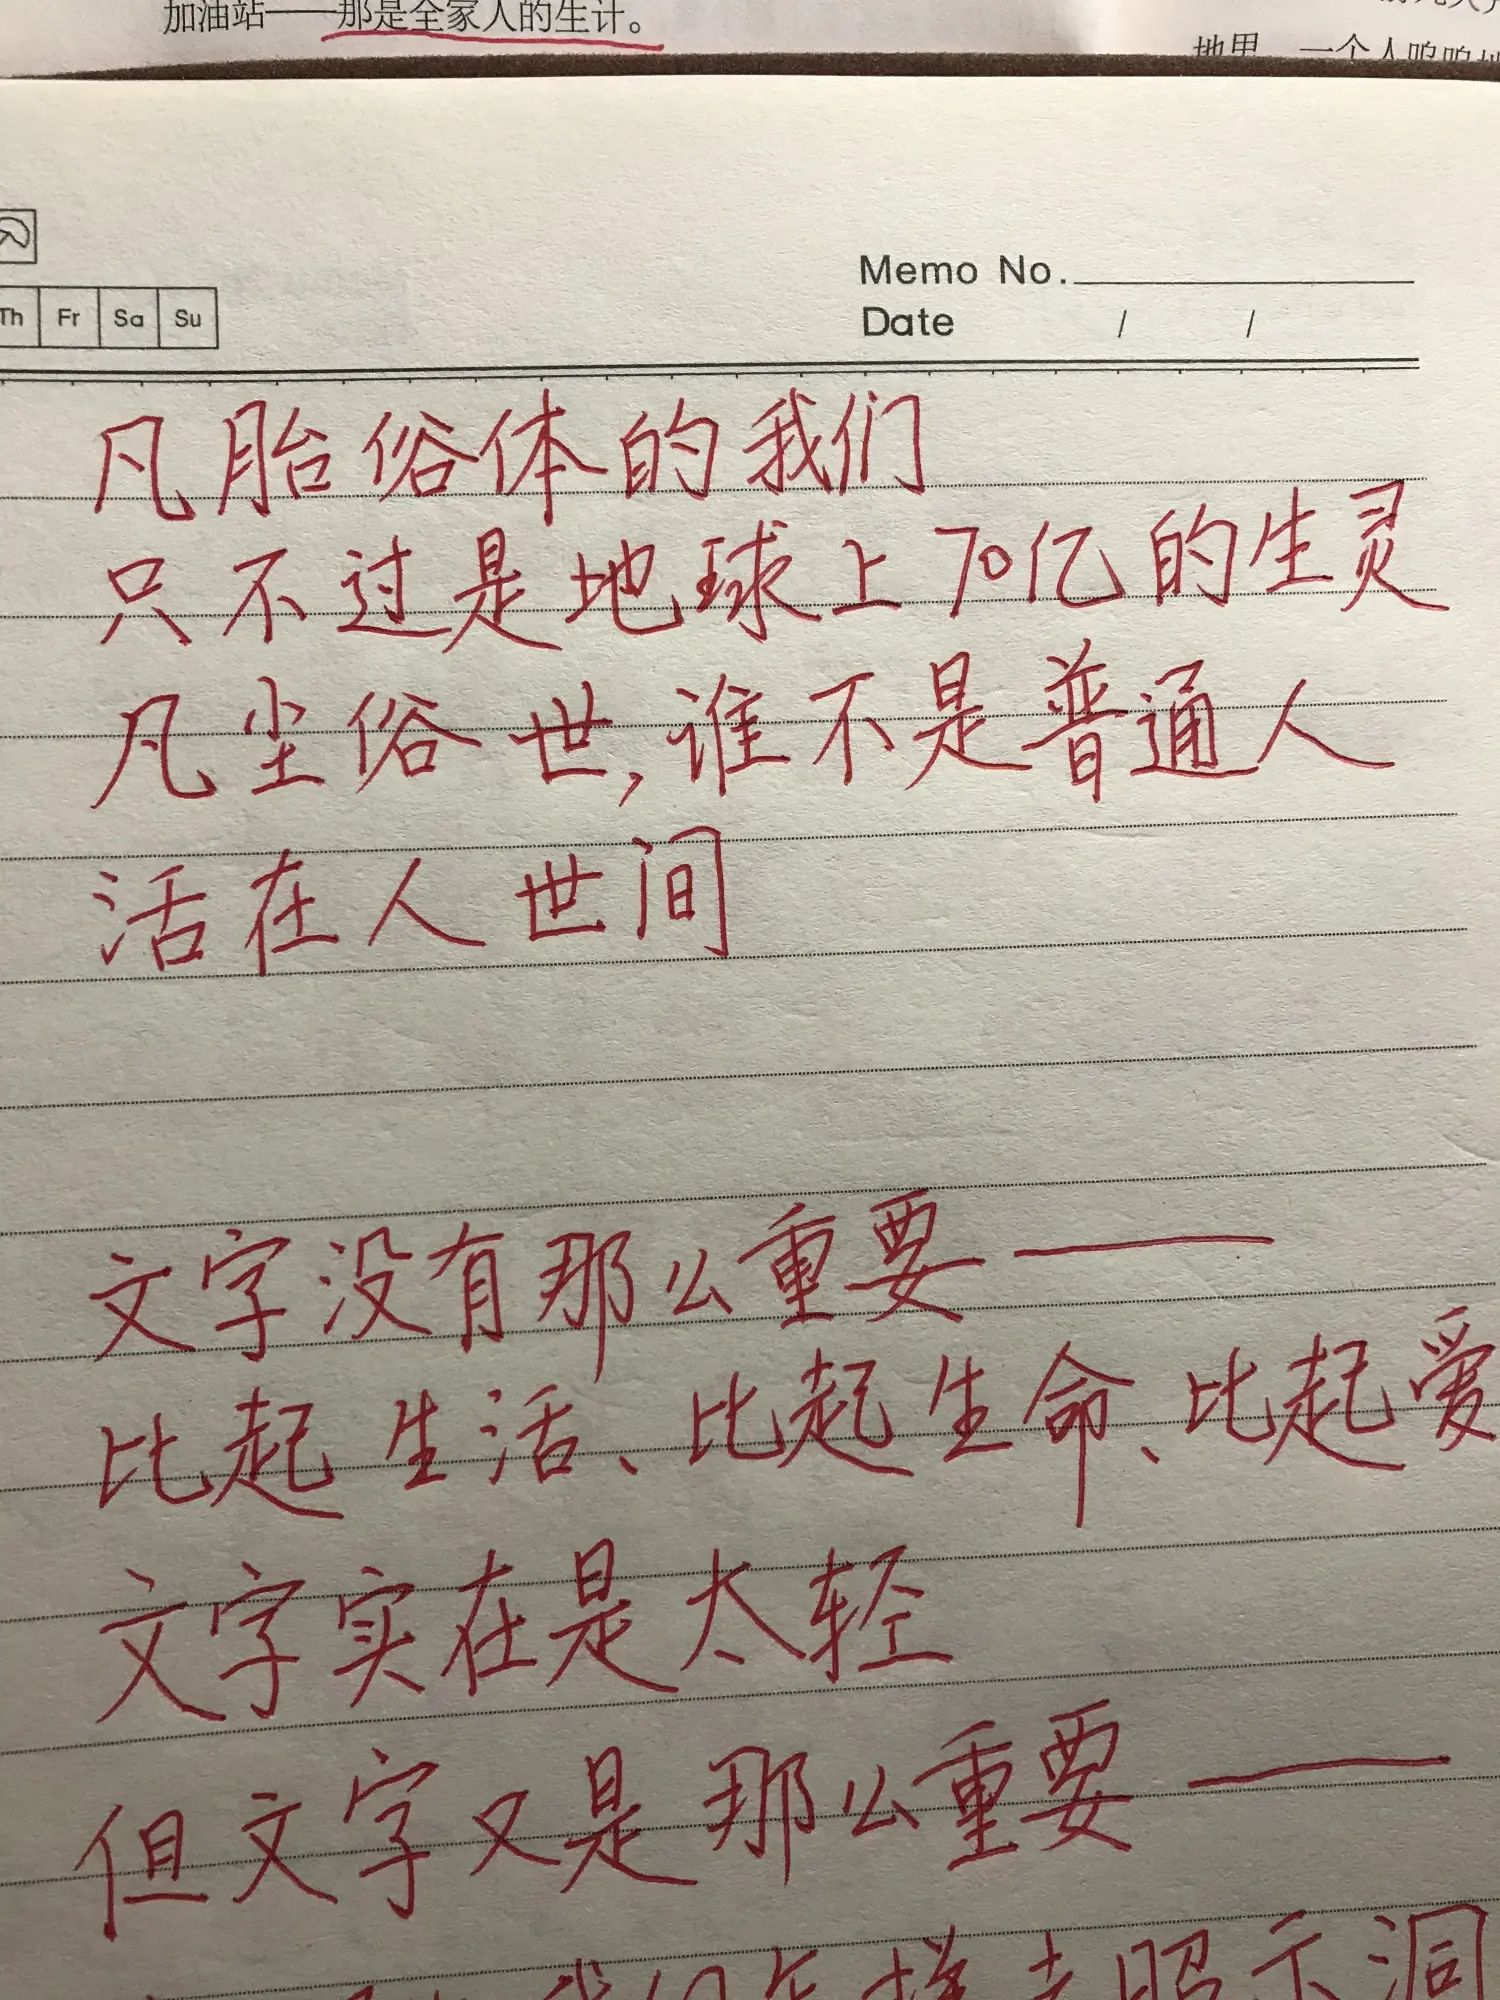 加油站——那是全家人的生计。
地里，一个人呜呜地
Th Fr Sa Su
Memo No.
Date / /
凡胎俗体的我们
只不过是地球上70亿的生灵
凡尘俗世，谁不是普通人
活在人世间
文字没有那么重要——
比起生活、比起生命、比起爱
文字实在是太轻
但文字又是那么重要——
我们怎样去昭示洞